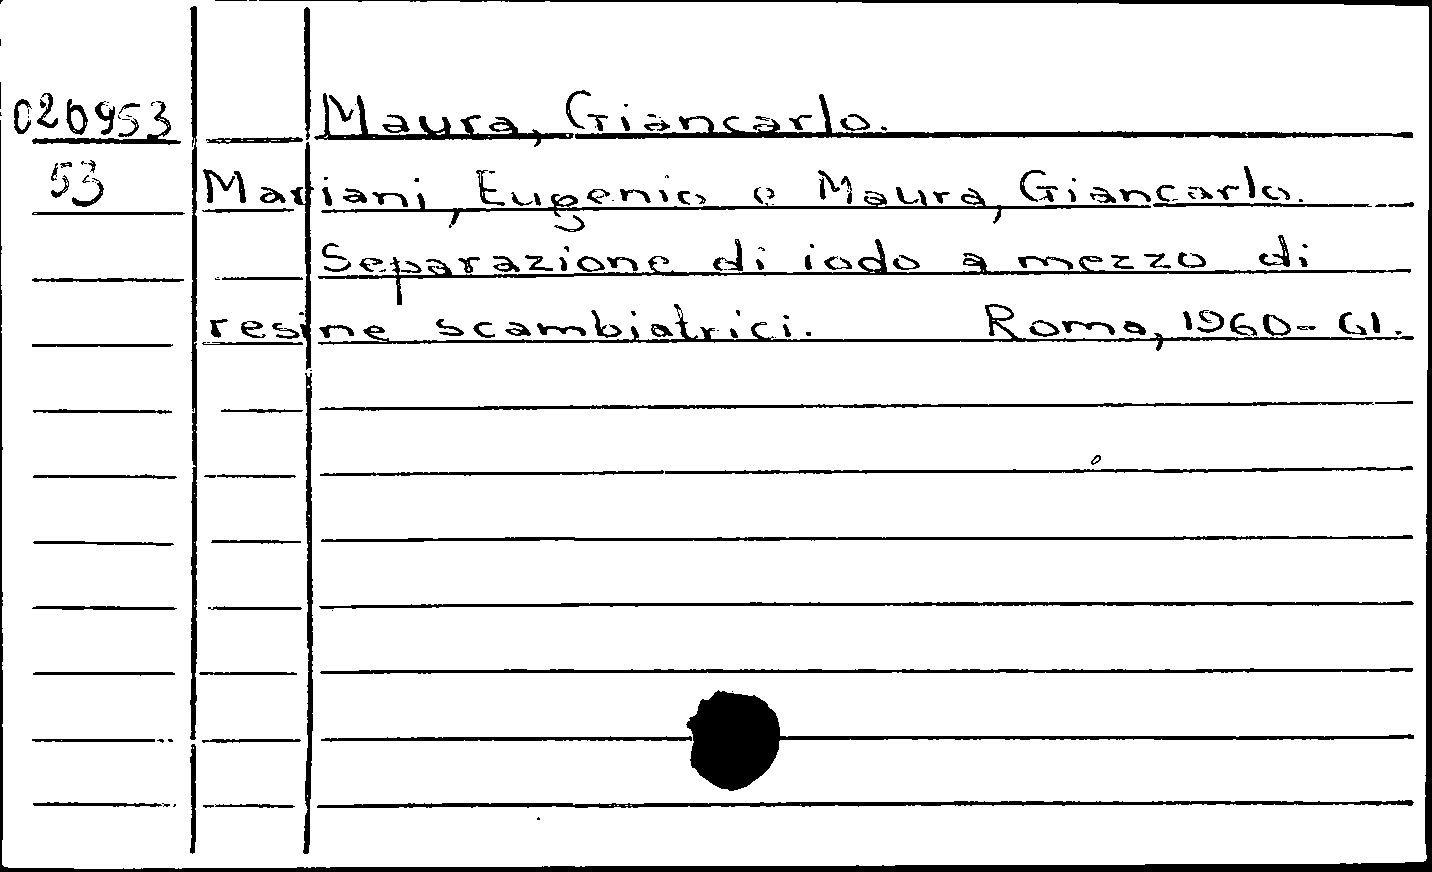 020953 Maura, Giancarlo.
53 Mariani, Eugenio e Maura, Giancarlo.
Separazione di iodo a mezzo di
resine scambiatrici. Roma, 1960-61.